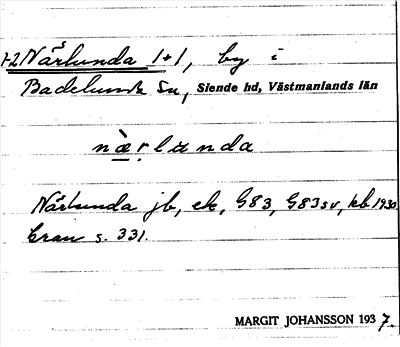 1-2 Närlunda 1+1, by i
Badelunda sn, Siende hd, Västmanlands län
nær̩lunda
Närlunda jb, ek, G83, G83sv, kb 1930.
Gran s. 331.
MARGIT JOHANSSON 1937.